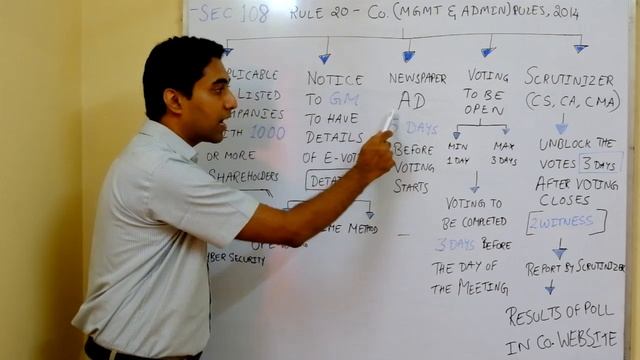 - SEC 108 RULE 20 - Co. (MGMT & ADMIN) RULES, 2014
LISTED
1000
OR MORE
SHAREHOLDERS
CYBER SECURITY
NOTICE
TO GM
TO HAVE
DETAILS
OF
METHOD
NEWSPAPER
AD
DAYS
BEFORE
VOTING
STARTS
VOTING
TO BE
OPEN
MIN MAX
1 DAY 3 DAYS
VOTING TO
BE COMPLETED
3 DAYS BEFORE
THE DAY OF
THE MEETING
SCRUTINIZER
(CS, CA, CMA)
UNBLOCK THE
VOTES 3 DAYS
AFTER VOTING
CLOSES
2 WITNESS
REPORT BY SCRUTINIZER
RESULTS OF POLL
IN Co. WEBSITE